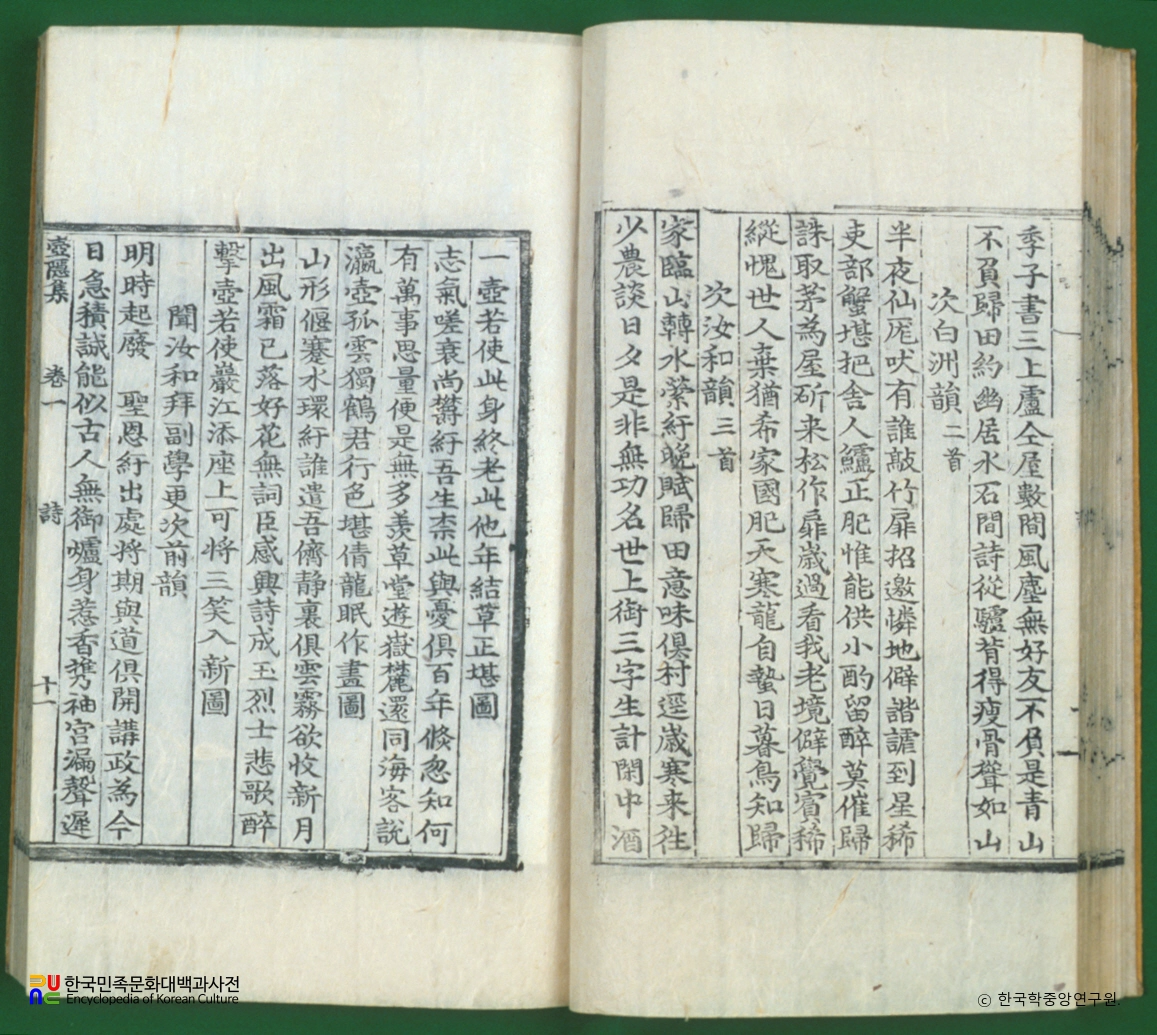 季子書三上盧仝屋數間風塵無好友不負是青山
不負歸田約幽居水石間詩從驢背得瘦骨聳如山
次白洲韻 二首
半夜仙厖吠有誰敲竹扉招邀憐地僻諧謔到星稀
吏部蟹堪把舍人鱸正肥惟能供小酌留醉莫催歸
誅取茅為屋斫来松作扉歲過看我老境僻覺賓稀
縱愧世人棄猶希家國肥天寒龍自蟄日暮鳥知歸
次汝和韻 三首
家臨山轉水縈紆晩賦歸田意味俱村逕歲寒来徃
少農談日夕是非無功名世上銜三字生計閑中酒
一壺若使此身終老此他年結草正堪圖
志氣嗟衰尚欝紆吾生柰此與憂俱百年倏忽知何
有萬事思量便是無多羡草堂遊嶽麓還同海客說
瀛壺孤雲獨鶴君行色堪倩龍眠作畫圖
山形偃蹇水環紆誰遣吾儕静裏俱雲霧欲收新月
出風霜已落好花無詞臣感興詩成玉烈士悲歌醉
擊壺若使巖江添座上可將三笑入新圖
聞汝和拜副學更次前韻
明時起廢 聖恩紆出處將期與道俱開講政為今
日急積誠能似古人無御爐身惹香携袖宮漏聲遲
壺隱集 卷一 詩 十一
한국민족문화대백과사전
Encyclopedia of Korean Culture
© 한국학중앙연구원.